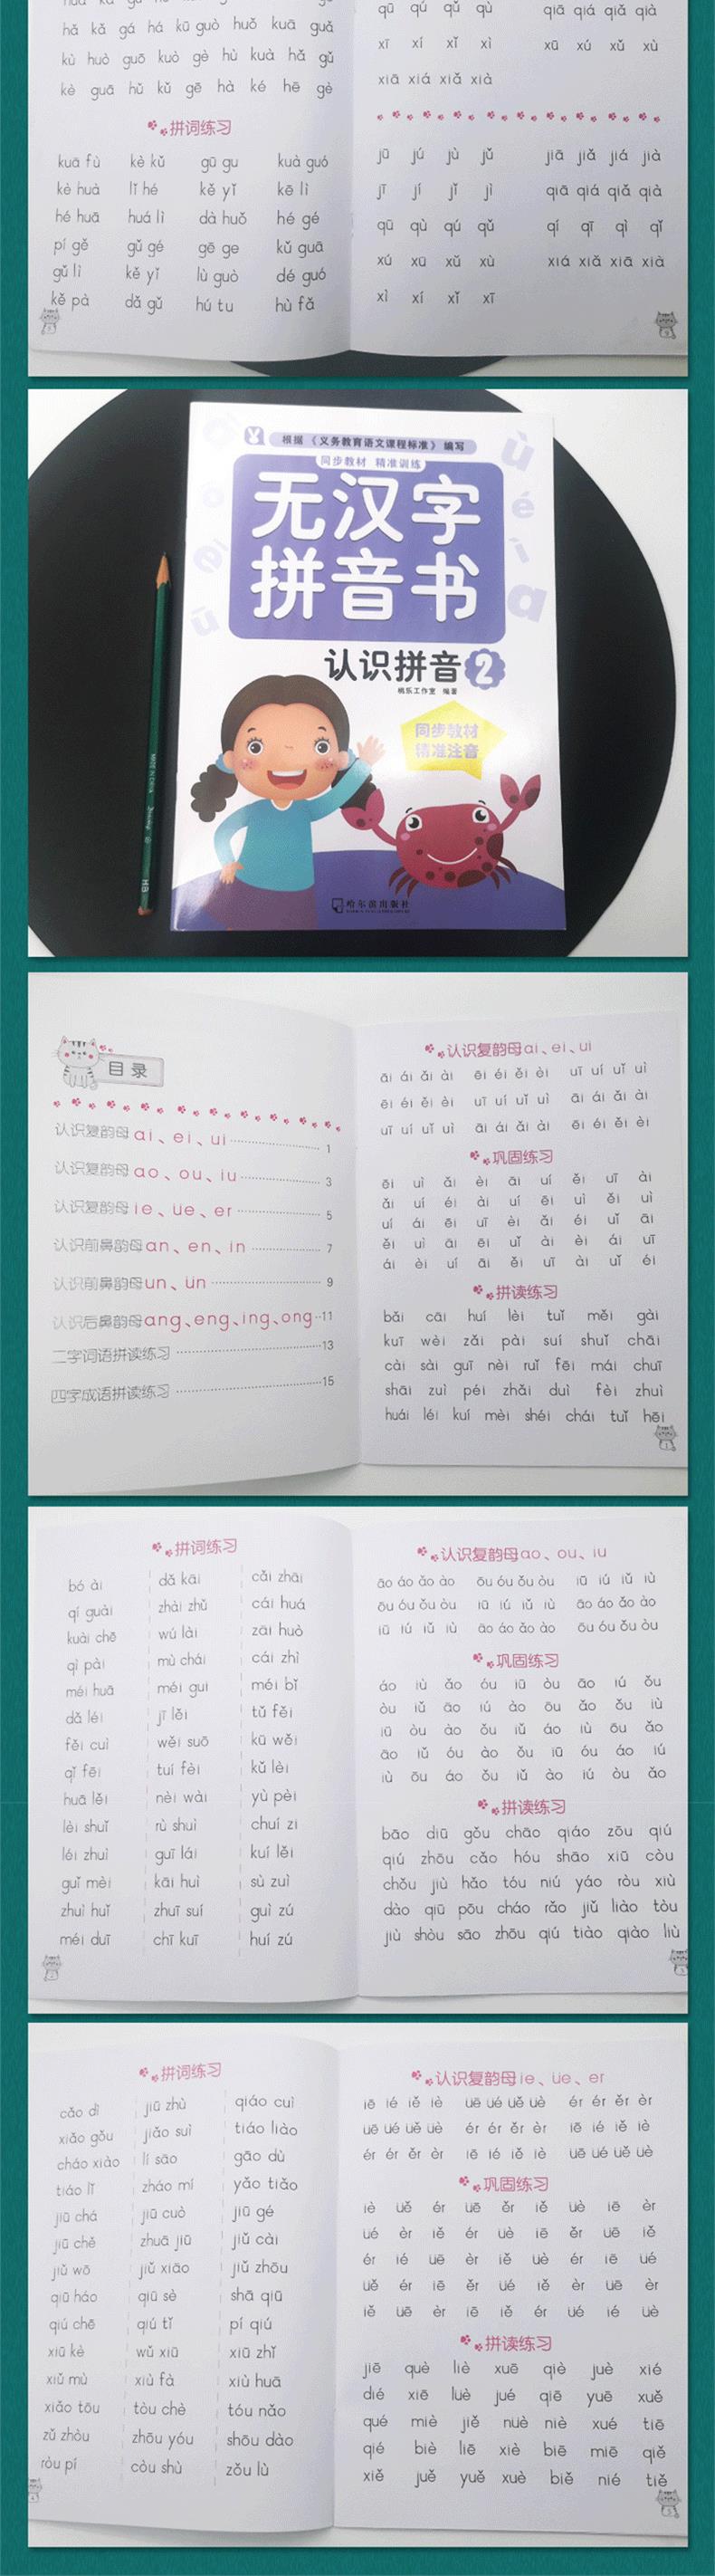 hǎ kǎ gá há kū guò huǒ kuā guǎ
kù huò guō kuò gè hù kuà hǎ gǔ
kè guā hǔ kǔ gē hà ké hē gè
拼词练习
kuā fù kè kǔ gū gu kuà guó
kè huà lǐ hé kě yǐ kē lì
hé huā huá lì dà huǒ hé gé
pí gě gǔ gé gē ge kǔ guā
gǔ lì kě yǐ lù guò dé guó
kě pà dǎ gǔ hú tu hù fǎ
qū qú qǔ qù qiā qiá qiǎ qià
xī xí xǐ xì xū xú xǔ xù
xiā xiá xiǎ xià
jū jú jù jǔ jiā jiǎ jiá jià
jī jí jǐ jì qiā qiá qiǎ qià
qū qù qú qǔ qí qī qì qǐ
xú xū xǔ xù xiá xiǎ xiā xià
xì xí xǐ xī
根据《义务教育语文课程标准》编写
同步教材 精准训练
无汉字
拼音书
认识拼音2
桃乐工作室 编著
同步教材
精准注音
哈尔滨出版社
目录
认识复韵母ai、ei、ui 1
认识复韵母ao、ou、iu 3
认识复韵母ie、üe、er 5
认识前鼻韵母an、en、in 7
认识前鼻韵母un、ün 9
认识后鼻韵母ang、eng、ing、ong 11
二字词语拼读练习 13
四字成语拼读练习 15
认识复韵母ai、ei、ui
āi ái ǎi ài ēi éi ěi èi uī uí uǐ uì
ēi éi ěi èi uī uí uǐ uì āi ái ǎi ài
uī uí uǐ uì āi ái ǎi ài ēi éi ěi èi
巩固练习
ēi uì ǎi èi āi uí ěi uī ài
ǎi uí éi ài uí ēi uì ěi uì
uí ái ēi uī èi ǎi éi uǐ āi
ěi uì āi ēi uǐ ài èi ái uī
ái èi uí āi ěi uī ài uǐ éi
拼读练习
bǎi cāi huí lèi tuǐ měi gài
kuī wèi zǎi pài suí shuǐ chāi
cài sài guī nèi ruǐ fēi mái chuī
shāi zuì péi zhǎi duì fèi zhuì
huái léi kuí mèi shéi chái tuǐ hēi
拼词练习
bó ài dǎ kāi cǎi zhāi
qí guài zhài zhǔ cái huá
kuài chē wú lài zāi huò
qì pài mù chái cái zhì
méi huā méi gui méi bǐ
dǎ léi jī lěi tǔ fěi
fěi cuì wěi suō kū wěi
qǐ fēi tuí fèi kǔ lèi
huā lěi nèi wài yù pèi
lèi shuǐ rù shuì chuí zi
léi zhuì guī lái kuí lěi
guǐ mèi kāi huì sù zuì
zhuì huǐ zhuī suí guì zú
méi duī chī kuī huí zú
认识复韵母ao、ou、iu
āo áo ǎo ào ōu óu ǒu òu iū iú iǔ iù
ōu óu ǒu òu iū iú iǔ iù āo áo ǎo ào
iū iú iǔ iù āo áo ǎo ào ōu óu ǒu òu
巩固练习
áo iù ǎo óu iū òu āo iú ǒu
òu iǔ āo iú ào ōu ǎo ǒu iù
iū òu ào ǒu iǔ áo iù ōu ǎo
āo iǔ óu ào ǒu iū óu áo iú
iù ōu áo ǒu iǔ ào iú òu ǎo
拼读练习
bāo diū gǒu chāo qiáo zōu qiú
qiú zhōu cǎo hóu shāo xiū còu
chǒu jiù hǎo tóu niú yáo ròu xiù
dào qiū pōu cháo rǎo jiǔ liào tòu
jiù shòu sāo zhōu qiú tiào qiào liù
拼词练习
cǎo dì jiū zhù qiáo cuì
xiǎo gǒu jiǎo suì tiáo liào
cháo xiào lí sāo gāo dù
tiáo lǐ zháo mí yǎo tiǎo
jiū chá jiū cuò jiū gé
jiū chě zhuā jiū jiǔ cài
jiǔ wō jiǔ xiāo jiǔ zhōu
qiū háo qiū sè shā qiū
qiú chē qiú tǐ pí qiú
xiū kè wǔ xiū xiū zhǐ
xiǔ mù xiù fà xiù huā
xiǎo tōu tòu chè tóu nǎo
zǔ zhòu zhōu yóu shōu dào
ròu pí còu shù zǒu lù
认识复韵母ie、üe、er
iē ié iě iè üē üé üě üè ér ér ěr èr
üē üé üě üè ér ér ěr èr iē ié iě iè
ér ér ěr èr iē ié iě iè üē üé üě üè
巩固练习
iè üě ér üē ěr iě üè iē èr
üé èr iě ér üè iē ěr üē iě
ér ié üē èr iě üè ér iē üé
üě ér iē ěr üé iě èr üē èr
iě üē èr iē iě ér üé ié üè
拼读练习
jiē què liè xuē qiè juè xié
dié xiē lüè jué qiē yuē xuě
qué miè jiě nüè niè xué tiē
qié biè liē xiè biē miē qiě
xiě juě yuě xuè biě nié tiě